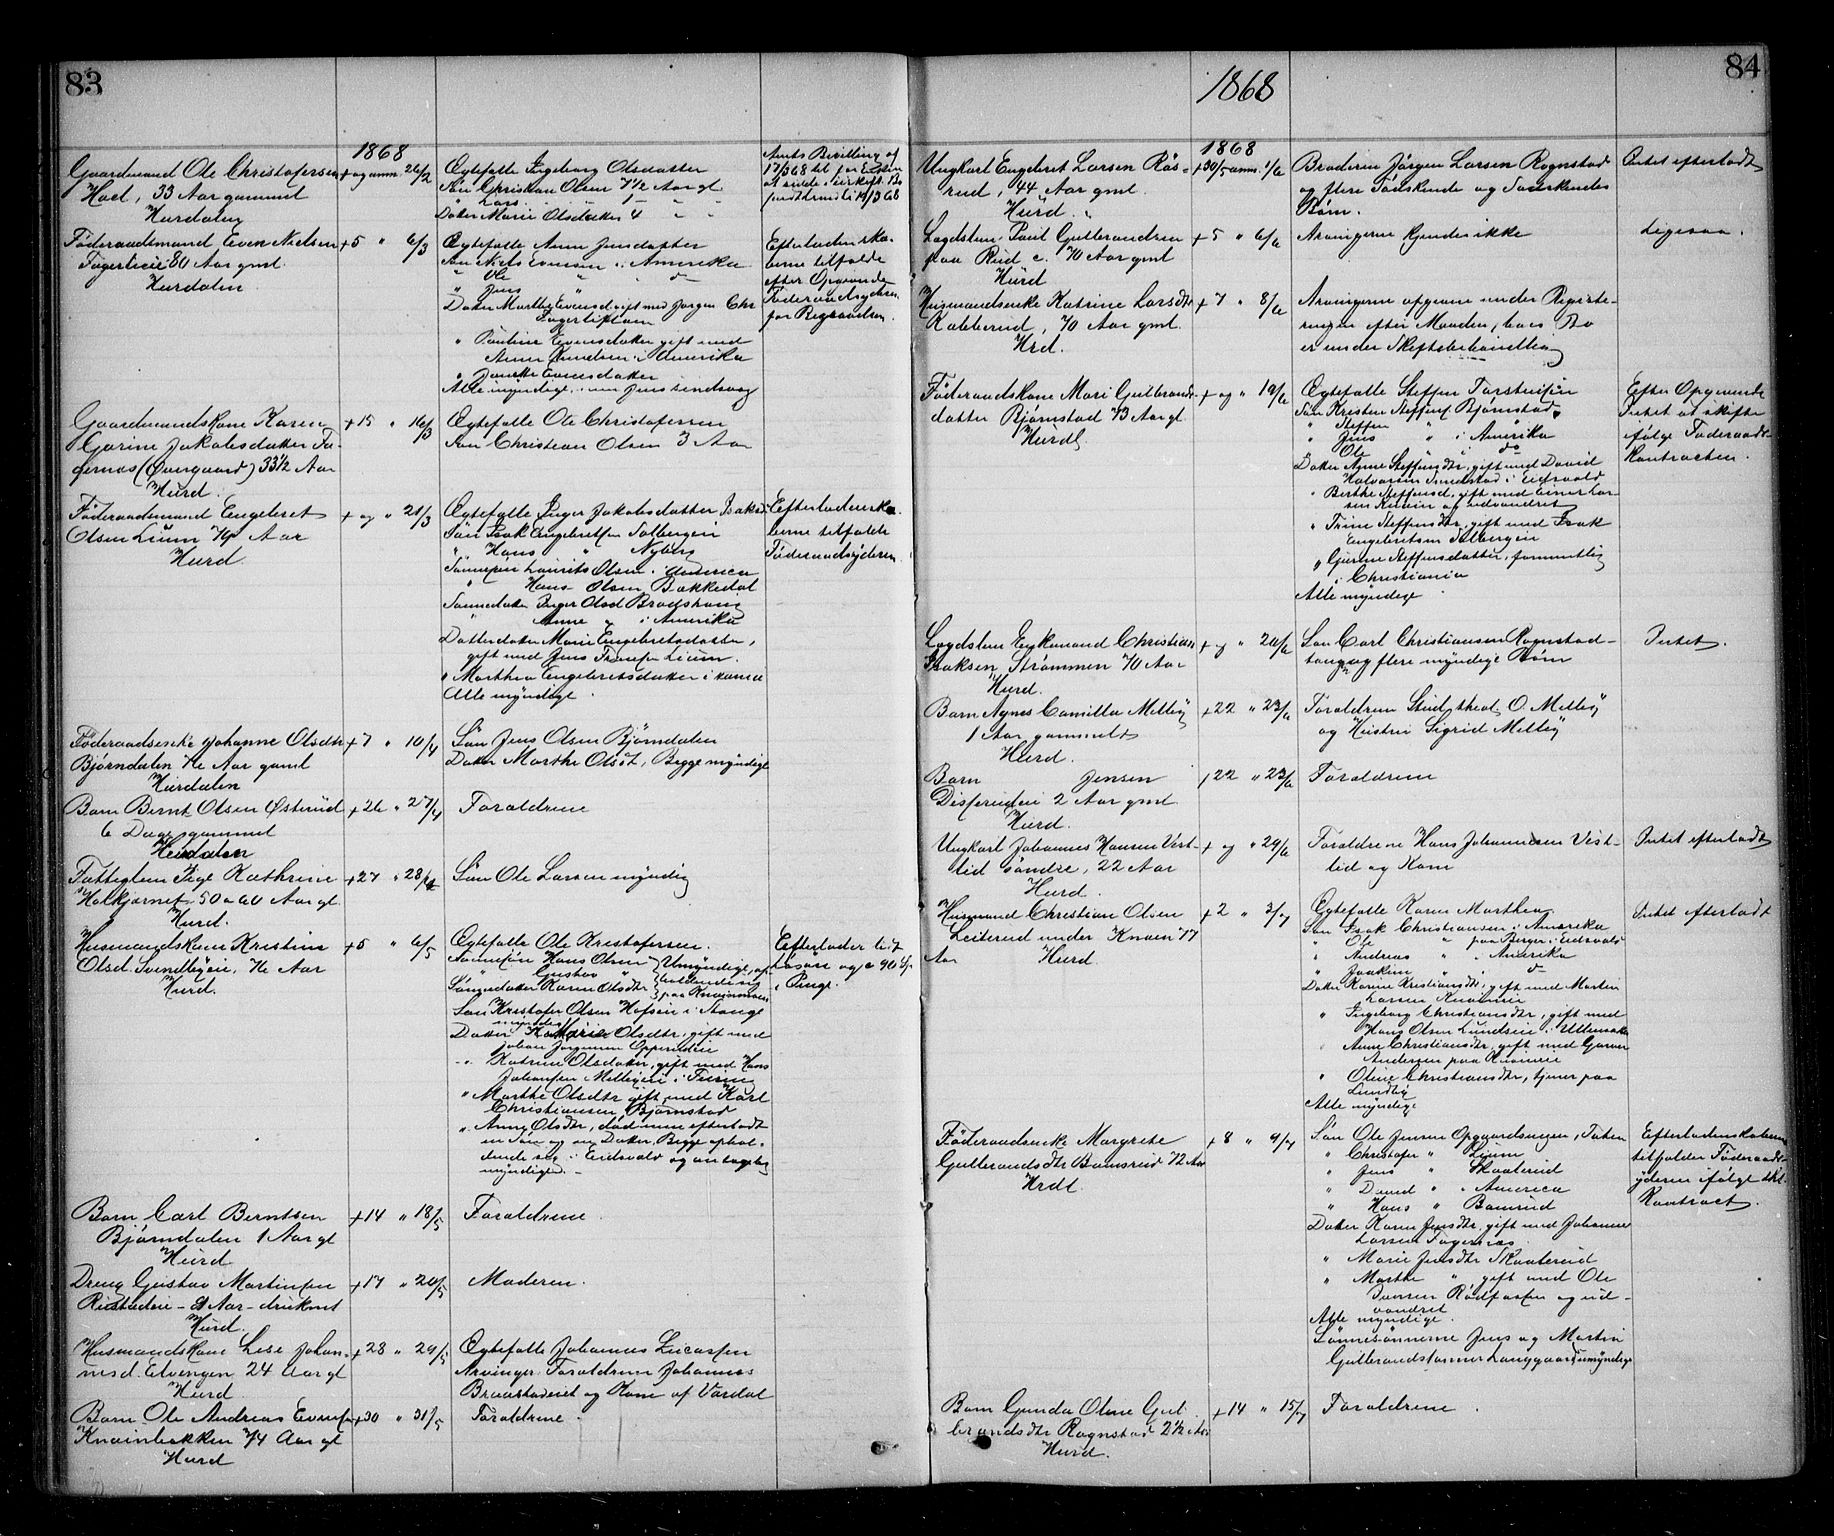 83
1868
Gaardmand Ole Christofersen
Hoel, 33 Aar gammel
Hurdalen
+ og anm. 26/2
Ægtefælle Ingeborg Olsdatter
Søn Christian Olsen 7 1/2 Aar gl.
" Lars
Datter Marie Olsdatter 4 " "
Amts Bevilling af
17/3 68 til for Enken
at sidde i uskiftet Bo
Føderaadsmand Even Nielsen
Fagerlieie 80 Aar gml.
Hurdalen
+5 " 6/3
Ægtefælle Anne Jensdatter
Søn Niels Evensen i Amerika
" Ole " do
" Jens "
Datter Marthe Evensd gift med Jørgen Chr
" Pauline Evensdatter gift med
Knudsen i Amerika
Evensdatter
Alle myndige
Efterladenska-
berne tilfalde
efter Opgivende
Føderaadsyderen
for Begravelsen.
Gaardmandskone Karen
Gorine Jakobsdatter Fa-
gernæs (Øvergaard) 33 1/2 Aar
Hurd.
+15 " 16/3
Ægtefælle Ole Christofersen
Søn Christian Olsen 3 Aar
Føderaadsmand Engebret
Olsen Lium Aar
Hurd
+ og " 21/3
Ægtefælle Inger Jakobsdatter
Søn Isak Engebretsen Solbergeie
" Hans " Nyberg
Sønnesøn Laurits Olsen i America
" Hans Olsen Bakkedal
Sønnedatter Inger Olsd
" Anne " i Amerika
Datterdatter Marie Engebretsdatter,
gift med Jens Lium.
" Marthea Engebretsdatter
Alle myndige.
Efterladenska-
berne tilfalde
Føderaadsyderen
Føderaadsenke Johanne Olsdtr
Bjørndalen 76 Aar gaml
Hurdalen
+7 " 10/4
Søn Jens Olsen Bjørndalen
Datter Marthe Olsdt, Begge myndige
Barn Bernt Olsen Østerud
6 Dage gammel
Hurdalen
+26 " 27/4
Forældrene
Fattiglem Pige Kathrine
Holkjærnet 50 a 60 Aar gl.
Hurd.
+27 " 28/4
Søn Ole Larsen myndig
Husmandskone Kristine
Olsd. Svendbyeie, 76 Aar
Hurd.
+5 " 6/5
Ægtefælle Ole Kristofersen.
Sønnesøn Hans Olsen
" Gustav "
Sønnedatter Karen Olsdtr
Umyndige, op-
holdende sig
paa
Søn Kristofer Olsen Hofseie i Stange
myndig
Datter Marie Olsdtr, gift med
Johan Jørgensen
" Katrine Olsdatter, gift med Hans
Johansen
" Marthe Olsdtr gift med Karl
Christiansen, Bjørnstad
" Anne Olsdtr, død men efterladt
en Søn og en Datter, Begge ophol-
dende sig i Eidsvold og antagelig
myndige. -
Efterlader lidt
Løsøre og c 90 Sp
i Penge.
Barn Carl Berntsen
Bjørndalen 1 Aar gl
Hurd
+14 " 18/5
Forældrene.
Dreng Gustav Martinsen
9 Aar - druknet
Hurd.
+17 " 20/5
Moderen.
Husmandskone Lise Johan-
nesd. Elvengen 24 Aar gl
Hurd.
+28 " 29/5
Ægtefælle Johannes Lucassen
Arvinger Forældrene Johannes
og Kone af Vardal
Barn Ole Andreas Evensen
Knainbakken 3/4 Aar gl
Hurd
+30 " 31/5
Forældrene.
84
1868
1868
Ungkarl Engebret Larsen Røs-
rud, 44 Aar gml.
Hurd.
+30/5 anm. 1/6
Broderen Jørgen Larsen Rognstad
og flere Sødskende og Sødskendes
Børn.
Intet efterladt
Lægdslem Paul Gulbrandsen
paa Rud c. 70 Aar gml
Hurd
+5 " 6/6
Arvingerne kjendes ikke
Ligesaa.
Husmandsenke Katrine Larsdtr
Kabberud, 70 Aar gml.
Hrd.
+7 " 8/6
Arvingerne opgivne under Registe-
ringen efter Manden, hvis Bo
er under Skiftebehandling
Føderaadskone Mari Gulbrands-
datter Bjørnstad 73 Aar gl.
Hurdl
+ og " 19/6
Ægtefælle Steffen Torstensen
Søn Kristen Steffens. Bjørnstad
" Steffen "
" Jens " i Amerika
" Ole " do
Datter Agne Steffensdtr, gift med David
Halvorsen i Eidsvold
" Berthe Steffensd, gift med Einer Lar-
sen og udvandret
" Trine Steffensdtr, gift med Isak
Engebretsen Solbergeie
" Gurine Steffensdatter, formentlig
i Christiania
Alle myndige
Efter Opgivende
Intet at skifte
ifølge Føderaads-
kontracten.
Lægdslem Enkemand Christian
Isaksen, Strømmen 70 Aar
Hurd.
+ og " 20/6
Søn Carl Christiansen Rognstad-
tangen og flere myndige Børn
Intet.
Barn Agnes Camilla Melby
1 Aar gammelt
Hurd.
+22 " 23/6
Forældrene Stud. theol. O. Melby
og Hustru Sigrid Melby
Barn Jensen
2 Aar gml.
Hurd.
+22 " 23/6
Forældrene
Ungkarl Johannes Hansen Vest-
lid søndre, 22 Aar
Hurd.
+ og " 29/6
Forældrene Hans Johannesen Vest-
lid og Kone
Intet efterladt
Husmand Christian Olsen
Leiterud under Knain 77
Aar Hurd.
+2 " 3/7
Ægtefælle Karen Marthea
Søn Isak Christiansen i Amerika
" Ole " paa Berger i Eidsvold
" Andreas " i Amerika
" Joakim " do
Datter Karine Kristiansdtr, gift med Martin
Larsen Knaineie
" Ingeborg Christiansdtr, gift med
Hans Olsen Lundseie i Ullensaker
" Anne Christiansdtr, gift med Gunder
Andersen paa Knaineie
" Oline Christiansdtr, tjener paa
Lundby
Alle myndige
Intet efterladt
Føderaadsenke Margrethe
Gulbrandsdtr Bamsrud 72 Aar
Hrdl.
+8 " 9/7
Søn Ole Jensen Opgaardseien, Toten
" Christofer " Lium
" Jens " Skaaterud
" David " " America
" Hans " Bamsrud
Datter Karen Jensdtr, gift med Johannes
Larsen Fagernæs.
" Marie Jensdtr Skaaterud
" Marthe " gift med Ole
Iversen Rødfossen og ud-
vandret
Alle myndige.
Sønnesønnerne Jens og Martin
Gulbrandsønner Langgaard, umyndige
Efterladenskaberne
tilfalder Føderaads-
yderen ifølge
Kontract.
Barn Gunda Oline Gul-
brandsdtr Rognstad 2 1/2 Aar
Hurd.
+14 " 15/7
Forældrene.